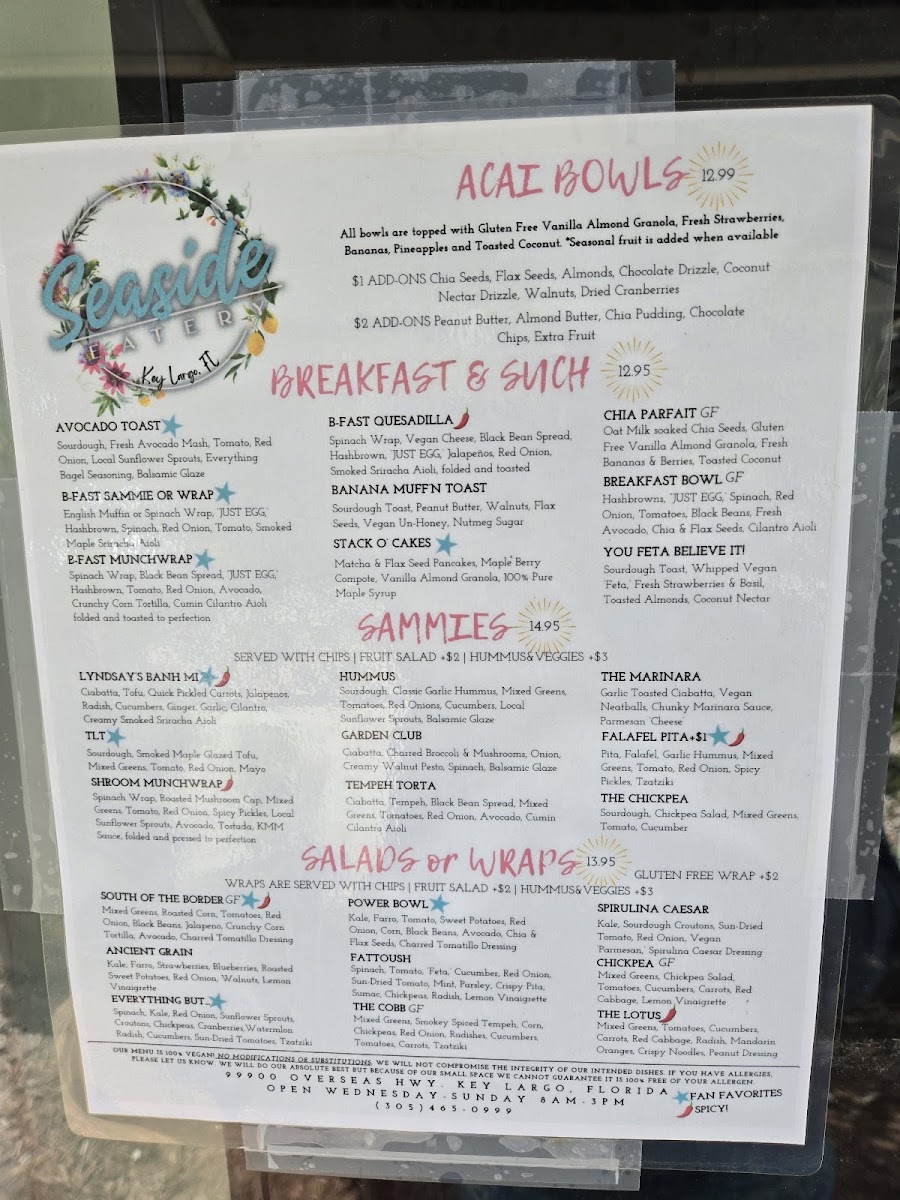 Seaside
EATERY
Key Largo, FL
ACAI BOWLS 12.99
All bowls are topped with Gluten Free Vanilla Almond Granola, Fresh Strawberries,
Bananas, Pineapples and Toasted Coconut. *Seasonal fruit is added when available
$1 ADD-ONS Chia Seeds, Flax Seeds, Almonds, Chocolate Drizzle, Coconut
Nectar Drizzle, Walnuts, Dried Cranberries
$2 ADD-ONS Peanut Butter, Almond Butter, Chia Pudding, Chocolate
Chips, Extra Fruit
BREAKFAST & SUCH 12.95
AVOCADO TOAST
Sourdough, Fresh Avocado Mash, Tomato, Red
Onion, Local Sunflower Sprouts, Everything
Bagel Seasoning, Balsamic Glaze
B-FAST SAMMIE OR WRAP
English Muffin or Spinach Wrap, 'JUST EGG,'
Hashbrown, Spinach, Red Onion, Tomato, Smoked
Maple Sriracha Aioli
B-FAST MUNCHWRAP
Spinach Wrap, Black Bean Spread, 'JUST EGG,'
Hashbrown, Tomato, Red Onion, Avocado,
Crunchy Corn Tortilla, Cumin Cilantro Aioli
folded and toasted to perfection
B-FAST QUESADILLA
Spinach Wrap, Vegan Cheese, Black Bean Spread,
Hashbrown, 'JUST EGG,' Jalapeños, Red Onion,
Smoked Sriracha Aioli, folded and toasted
BANANA MUFF'N TOAST
Sourdough Toast, Peanut Butter, Walnuts, Flax
Seeds, Vegan Un-Honey, Nutmeg Sugar
STACK O' CAKES
Matcha & Flax Seed Pancakes, Maple Berry
Compote, Vanilla Almond Granola, 100% Pure
Maple Syrup
CHIA PARFAIT GF
Oat Milk soaked Chia Seeds, Gluten
Free Vanilla Almond Granola, Fresh
Bananas & Berries, Toasted Coconut
BREAKFAST BOWL GF
Hashbrowns, 'JUST EGG,' Spinach, Red
Onion, Tomatoes, Black Beans, Fresh
Avocado, Chia & Flax Seeds, Cilantro Aioli
YOU FETA BELIEVE IT!
Sourdough Toast, Whipped Vegan
'Feta,' Fresh Strawberries & Basil,
Toasted Almonds, Coconut Nectar
SAMMIES 14.95
SERVED WITH CHIPS | FRUIT SALAD +$2 | HUMMUS&VEGGIES +$3
LYNDSAY'S BANH MI
Ciabatta, Tofu, Quick Pickled Carrots, Jalapenos,
Radish, Cucumbers, Ginger, Garlic, Cilantro,
Creamy Smoked Sriracha Aioli
TLT
Sourdough, Smoked Maple Glazed Tofu,
Mixed Greens, Tomato, Red Onion, Mayo
SHROOM MUNCHWRAP
Spinach Wrap, Roasted Mushroom Cap, Mixed
Greens, Tomato, Red Onion, Spicy Pickles, Local
Sunflower Sprouts, Avocado, Tostada, KMM
Sauce, folded and pressed to perfection
HUMMUS
Sourdough, Classic Garlic Hummus, Mixed Greens,
Tomatoes, Red Onions, Cucumbers, Local
Sunflower Sprouts, Balsamic Glaze
GARDEN CLUB
Ciabatta, Charred Broccoli & Mushrooms, Onion,
Creamy Walnut Pesto, Spinach, Balsamic Glaze
TEMPEH TORTA
Ciabatta, Tempeh, Black Bean Spread, Mixed
Greens, Tomatoes, Red Onion, Avocado, Cumin
Cilantro Aioli
THE MARINARA
Garlic Toasted Ciabatta, Vegan
Neatballs, Chunky Marinara Sauce,
Parmesan 'Cheese'
FALAFEL PITA+$1
Pita, Falafel, Garlic Hummus, Mixed
Greens, Tomato, Red Onion, Spicy
Pickles, Tzatziki
THE CHICKPEA
Sourdough, Chickpea Salad, Mixed Greens,
Tomato, Cucumber
SALADS or WRAPS 13.95
GLUTEN FREE WRAP +$2
WRAPS ARE SERVED WITH CHIPS | FRUIT SALAD +$2 | HUMMUS&VEGGIES +$3
SOUTH OF THE BORDER GF
Mixed Greens, Roasted Corn, Tomatoes, Red
Onion, Black Beans, Jalapeno, Crunchy Corn
Tortilla, Avocado, Charred Tomatillo Dressing
ANCIENT GRAIN
Kale, Farro, Strawberries, Blueberries, Roasted
Sweet Potatoes, Red Onion, Walnuts, Lemon
Vinaigrette
EVERYTHING BUT...
Spinach, Kale, Red Onion, Sunflower Sprouts,
Croutons, Chickpeas, Cranberries,Watermlon
Radish, Cucumbers, Sun-Dried Tomatoes, Tzatziki
POWER BOWL
Kale, Farro, Tomato, Sweet Potatoes, Red
Onion, Corn, Black Beans, Avocado, Chia &
Flax Seeds, Charred Tomatillo Dressing
FATTOUSH
Spinach, Tomato, 'Feta,' Cucumber, Red Onion,
Sun-Dried Tomato, Mint, Parsley, Crispy Pita,
Sumac, Chickpeas, Radish, Lemon Vinaigrette
THE COBB GF
Mixed Greens, Smokey Spiced Tempeh, Corn,
Chickpeas, Red Onion, Radishes, Cucumber,
Tomatoes, Carrots, Tzatziki
SPIRULINA CAESAR
Kale, Sourdough Croutons, Sun-Dried
Tomato, Red Onion, Vegan
'Parmesan,' Spirulina Caesar Dressing
CHICKPEA GF
Mixed Greens, Chickpea Salad,
Tomatoes, Cucumbers, Carrots, Red
Cabbage, Lemon Vinaigrette
THE LOTUS
Mixed Greens, Tomatoes, Cucumbers,
Carrots, Red Cabbage, Radish, Mandarin
Oranges, Crispy Noodles, Peanut Dressing
OUR MENU IS 100% VEGAN! NO MODIFICATIONS OR SUBSTITUTIONS. WE WILL NOT COMPROMISE THE INTEGRITY OF OUR INTENDED DISHES. IF YOU HAVE ALLERGIES,
PLEASE LET US KNOW. WE WILL DO OUR ABSOLUTE BEST BUT BECAUSE OF OUR SMALL SPACE WE CANNOT GUARANTEE IT IS 100% FREE OF YOUR ALLERGEN.
99900 OVERSEAS HWY. KEY LARGO, FLORIDA
OPEN WEDNESDAY-SUNDAY 8AM-3PM
(305)465-0999
FAN FAVORITES
SPICY!